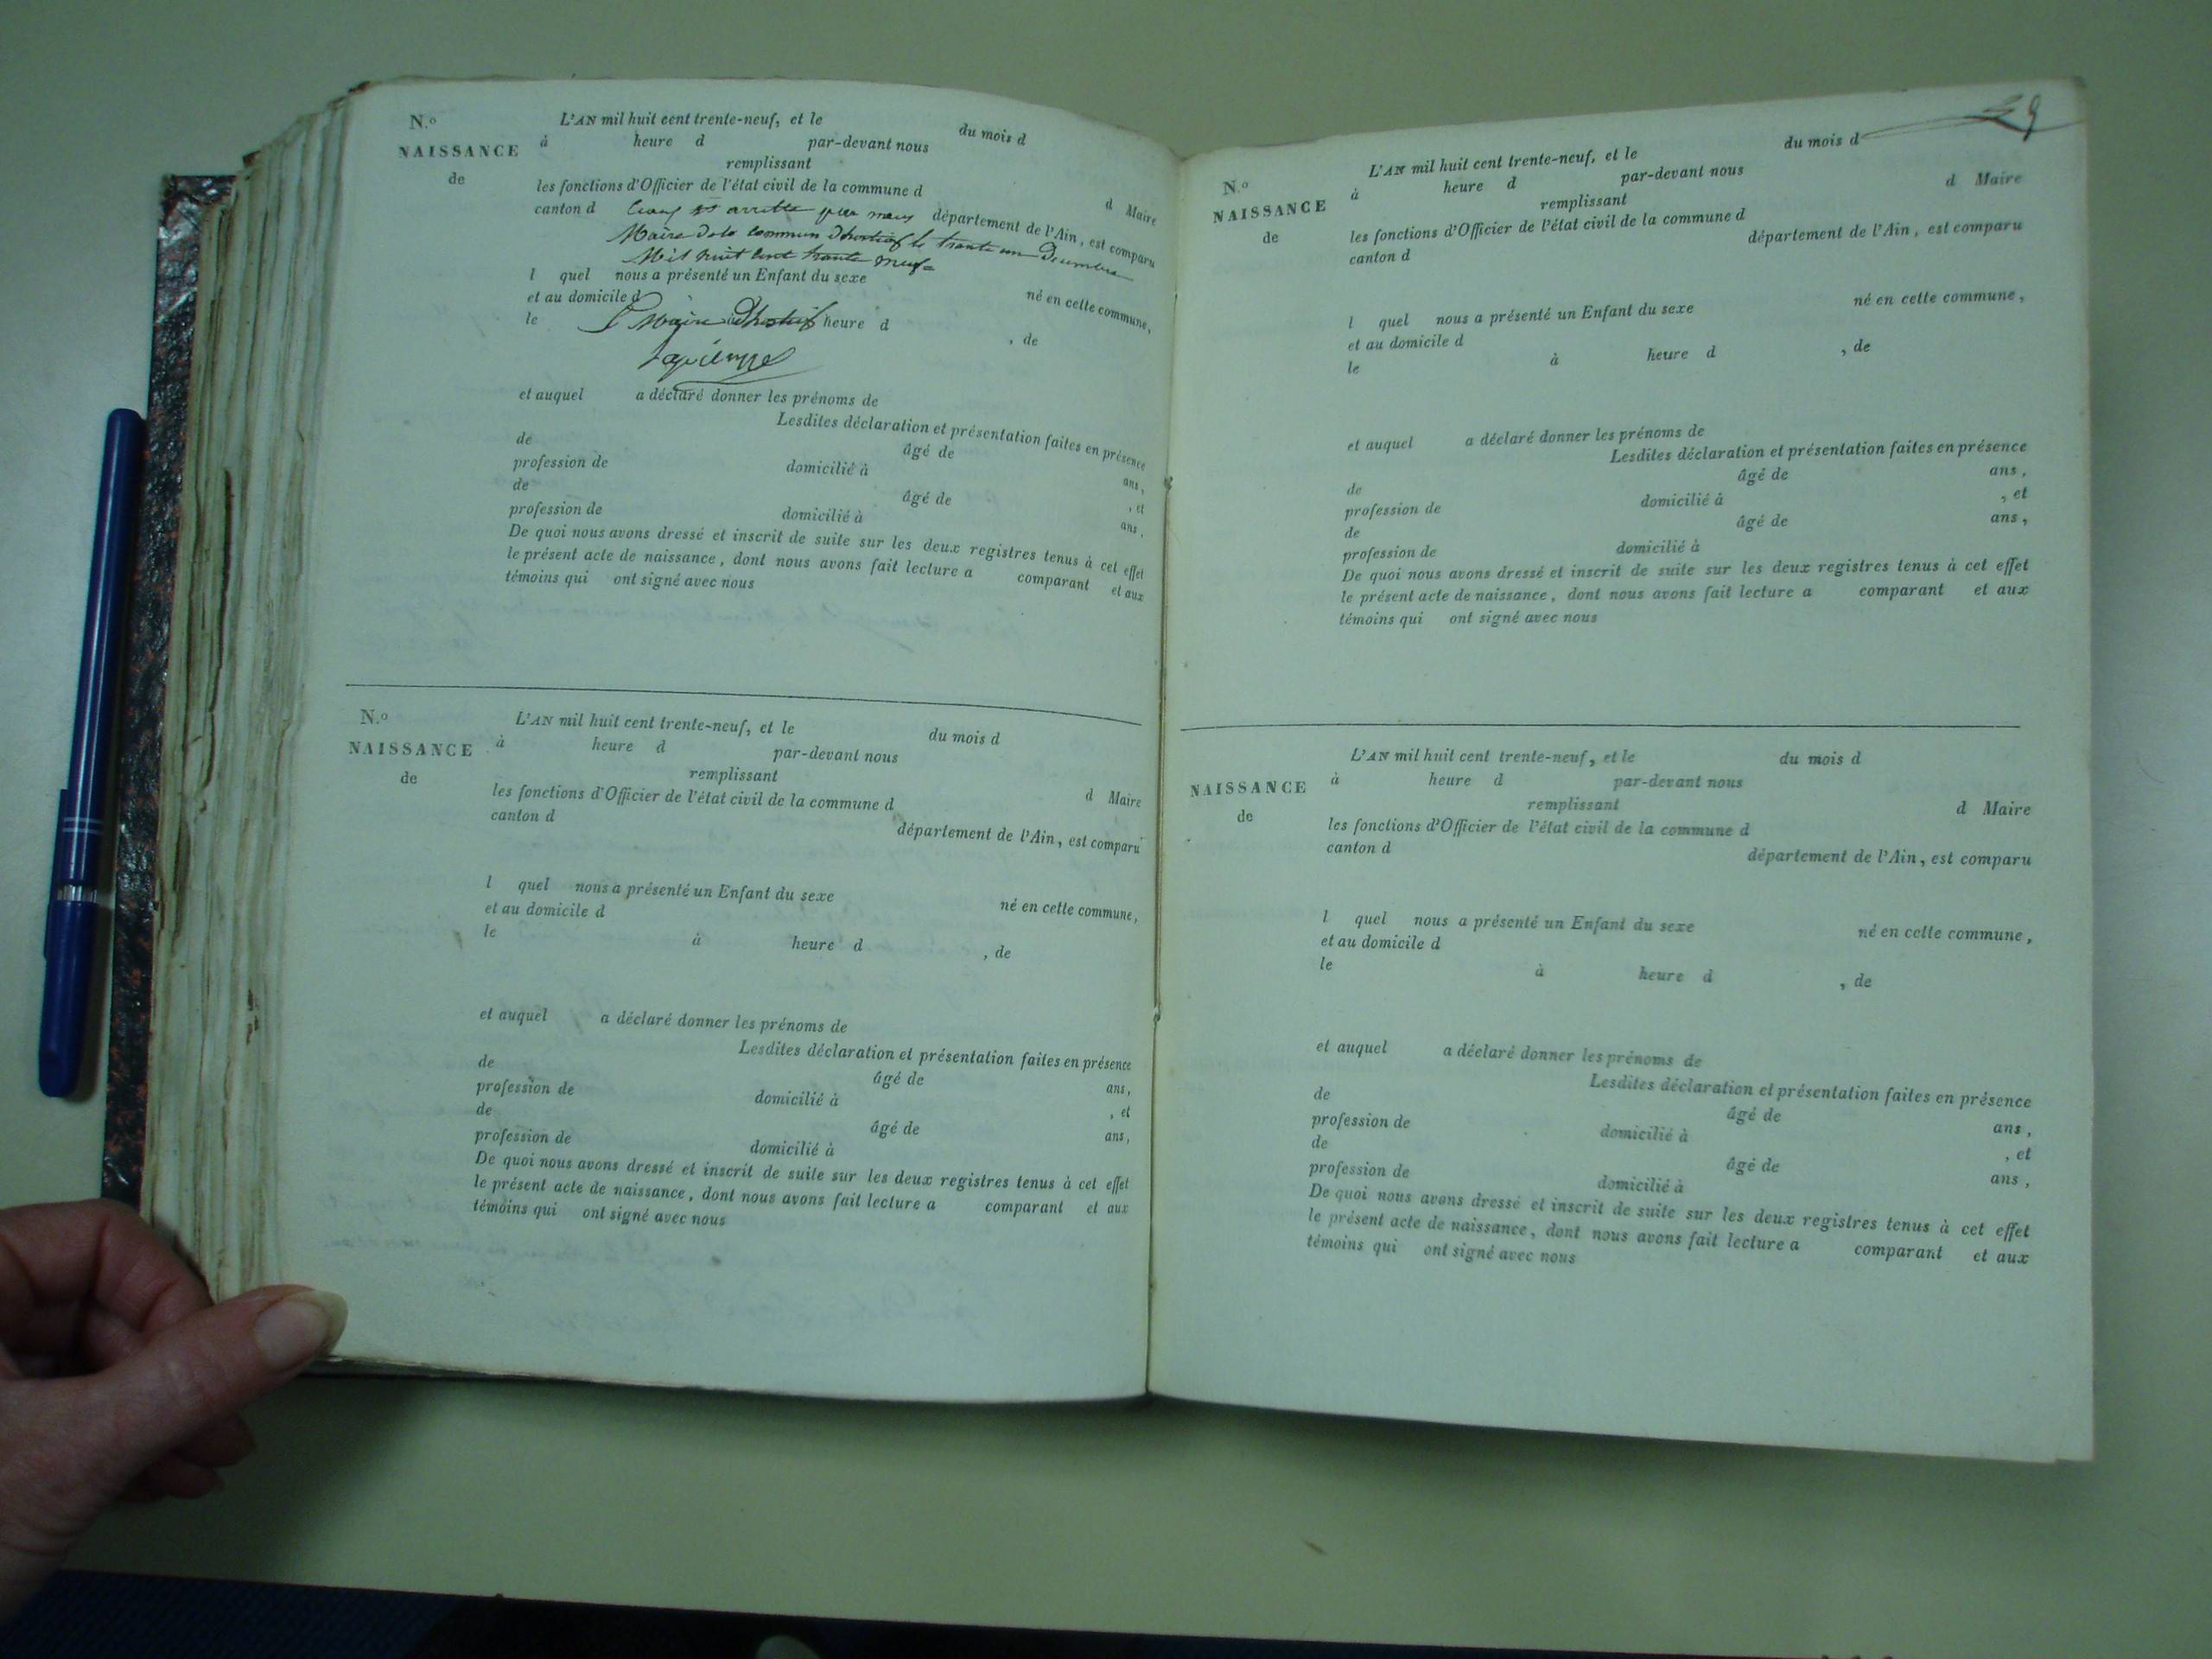 N.o
NAISSANCE
de
L'AN mil huit cent trente-neuf, et le du mois d
à heure d par-devant nous
remplissant d Maire
les fonctions d'Officier de l'état civil de la commune d
canton d département de l'Ain, est comparu
et arretté par nous
Maire de la commun le trante un Decembre
Mil huit cent trante neuf
l quel nous a présenté un Enfant du sexe né en cette commune,
et au domicile d
le heure d , de
Maire
et auquel a déclaré donner les prénoms de
Lesdites déclaration et présentation faites en présence
de âgé de ans,
profession de domicilié à , et
de âgé de ans,
profession de domicilié à
De quoi nous avons dressé et inscrit de suite sur les deux registres tenus à cet effet
le présent acte de naissance, dont nous avons fait lecture a comparant et aux
témoins qui ont signé avec nous
N.o
NAISSANCE
de
L'AN mil huit cent trente-neuf, et le du mois d
à heure d par-devant nous
remplissant d Maire
les fonctions d'Officier de l'état civil de la commune d
canton d département de l'Ain, est comparu
l quel nous a présenté un Enfant du sexe né en cette commune,
et au domicile d
le à heure d , de
et auquel a déclaré donner les prénoms de
Lesdites déclaration et présentation faites en présence
de âgé de ans,
profession de domicilié à , et
de âgé de ans,
profession de domicilié à
De quoi nous avons dressé et inscrit de suite sur les deux registres tenus à cet effet
le présent acte de naissance, dont nous avons fait lecture a comparant et aux
témoins qui ont signé avec nous
N.o
NAISSANCE
de
L'AN mil huit cent trente-neuf, et le du mois d
à heure d par-devant nous
remplissant d Maire
les fonctions d'Officier de l'état civil de la commune d
canton d département de l'Ain, est comparu
l quel nous a présenté un Enfant du sexe né en cette commune,
et au domicile d
le à heure d , de
et auquel a déclaré donner les prénoms de
Lesdites déclaration et présentation faites en présence
de âgé de ans,
profession de domicilié à , et
de âgé de ans,
profession de domicilié à
De quoi nous avons dressé et inscrit de suite sur les deux registres tenus à cet effet
le présent acte de naissance, dont nous avons fait lecture a comparant et aux
témoins qui ont signé avec nous
NAISSANCE
de
L'AN mil huit cent trente-neuf, et le du mois d
à heure d par-devant nous
remplissant d Maire
les fonctions d'Officier de l'état civil de la commune d
canton d département de l'Ain, est comparu
l quel nous a présenté un Enfant du sexe né en cette commune,
et au domicile d
le à heure d , de
et auquel a déclaré donner les prénoms de
Lesdites déclaration et présentation faites en présence
de âgé de ans,
profession de domicilié à , et
de âgé de ans,
profession de domicilié à
De quoi nous avons dressé et inscrit de suite sur les deux registres tenus à cet effet
le présent acte de naissance, dont nous avons fait lecture a comparant et aux
témoins qui ont signé avec nous